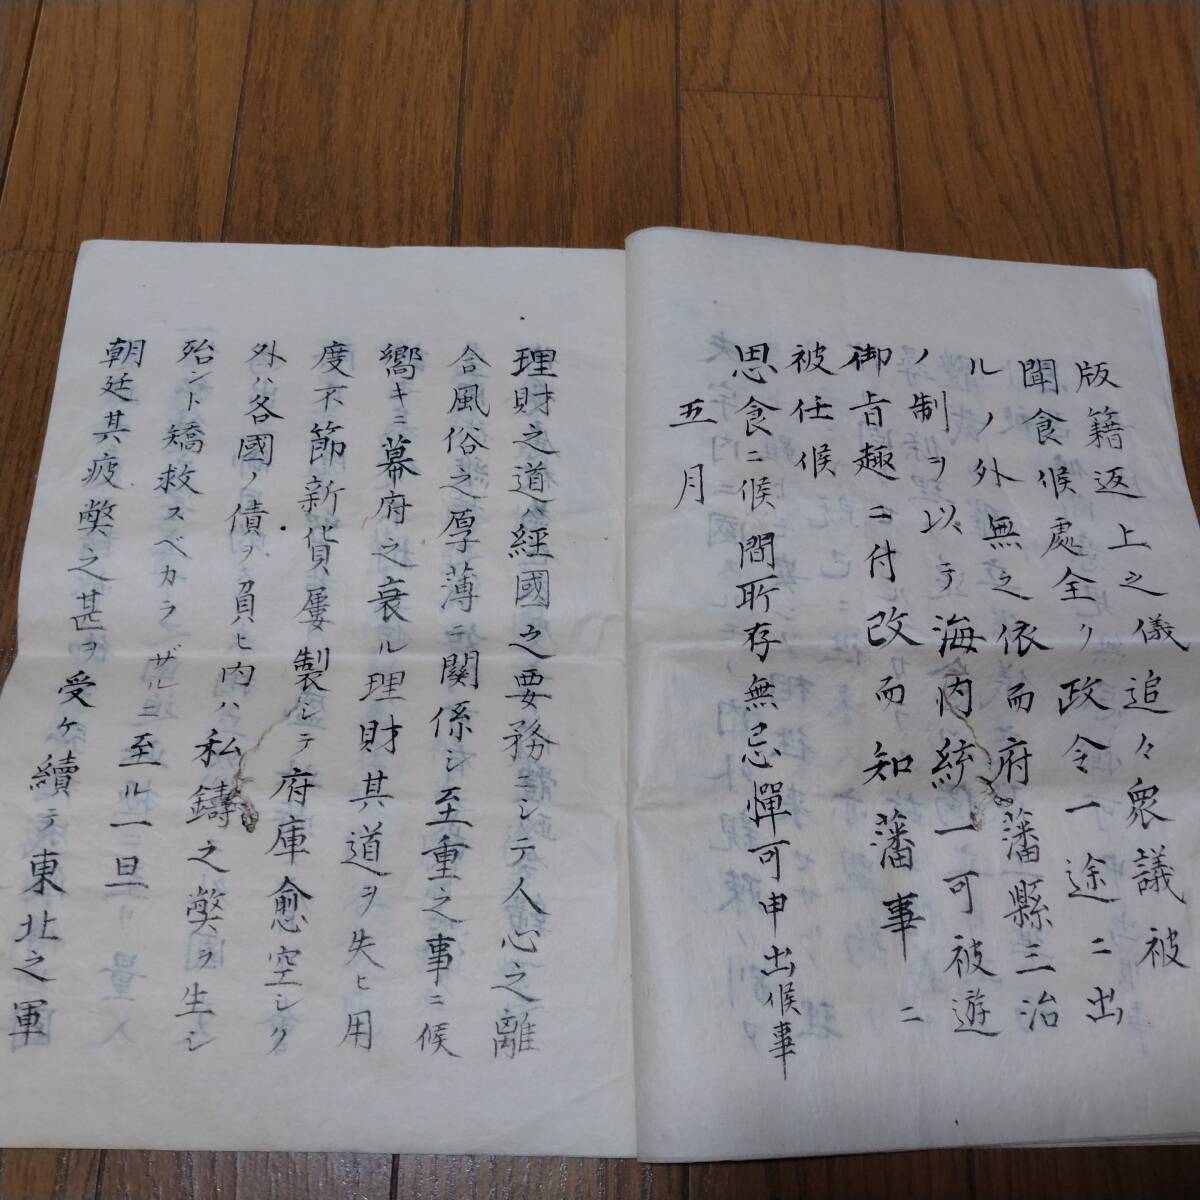 版籍返上之儀追々衆議被
聞食候處全ク政令一途ニ出
ルノ外無之依而府藩縣三治
ノ制ヲ以テ海内統一可被遊
御旨趣ニ付改而知藩事ニ
被任候
思食ニ候間所存無忌憚可申出候事
五月
理財之道ハ經國之要務ニシテ人心之離
合風俗之厚薄ニ関係シ至重之事ニ候
嚮キニ幕府之衰ル理財其道ヲ失ヒ用
度不節新貨屢製シテ府庫愈空シク
外ハ各國ノ債ヲ負ヒ内ハ私鑄之弊ヲ生シ
殆ント矯救スベカラザルニ至ル一旦
朝廷其疲弊之甚ヲ受ケ續テ東北之軍